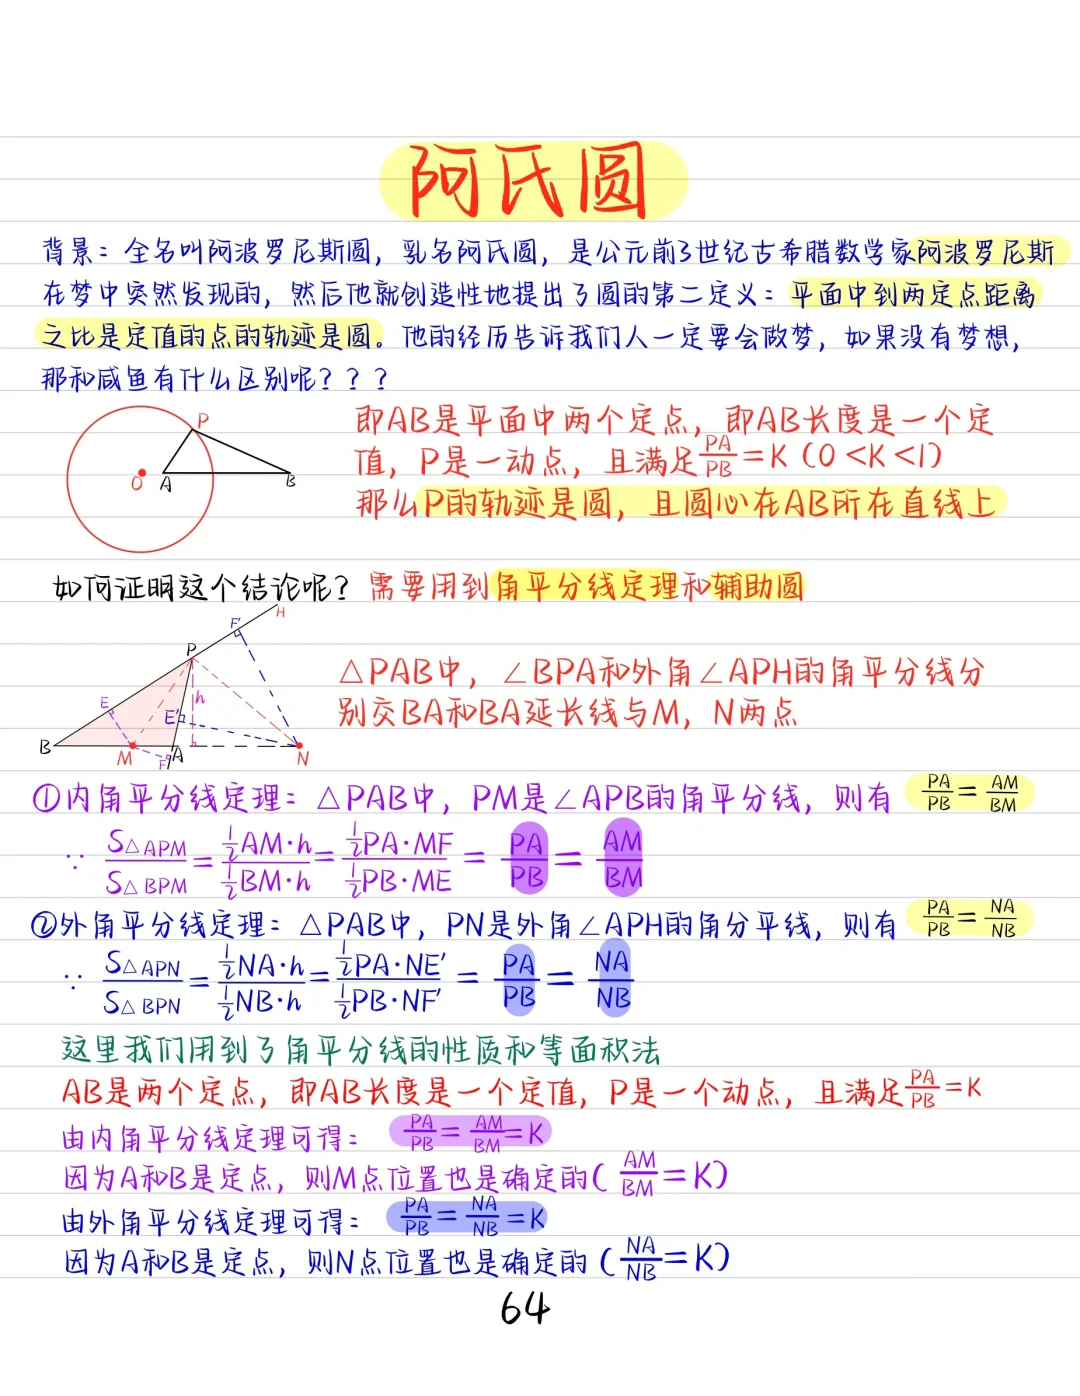 阿氏圆
背景：全名叫阿波罗尼斯圆，乳名阿氏圆，是公元前3世纪古希腊数学家阿波罗尼斯
在梦中突然发现的，然后他就创造性地提出了圆的第二定义：平面中到两定点距离
之比是定值的点的轨迹是圆。他的经历告诉我们人一定要会做梦，如果没有梦想，
那和咸鱼有什么区别呢？？？
P
O A B
即AB是平面中两个定点，即AB长度是一个定
值，P是一动点，且满足PA/PB=K（0<K<1）
那么P的轨迹是圆，且圆心在AB所在直线上
如何证明这个结论呢？需要用到角平分线定理和辅助圆
F' H
P
E h
E'
B M F A N
△PAB中，∠BPA和外角∠APH的角平分线分
别交BA和BA延长线与M，N两点
①内角平分线定理：△PAB中，PM是∠APB的角平分线，则有 PA/PB=AM/BM
∵ S△APM/S△BPM=½AM·h/½BM·h=½PA·MF/½PB·ME = PA/PB = AM/BM
②外角平分线定理：△PAB中，PN是外角∠APH的角分平线，则有 PA/PB=NA/NB
∵ S△APN/S△BPN=½NA·h/½NB·h=½PA·NE'/½PB·NF' = PA/PB = NA/NB
这里我们用到了角平分线的性质和等面积法
AB是两个定点，即AB长度是一个定值，P是一个动点，且满足PA/PB=K
由内角平分线定理可得： PA/PB=AM/BM=K
因为A和B是定点，则M点位置也是确定的（AM/BM=K）
由外角平分线定理可得： PA/PB=NA/NB=K
因为A和B是定点，则N点位置也是确定的（NA/NB=K）
64